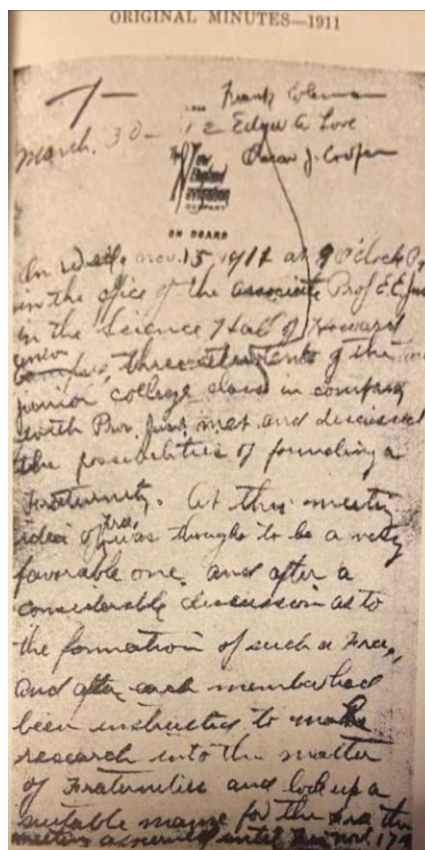 ORIGINAL MINUTES—1911
Frank Coleman
March. 30 - 12 Edgar A Love
Oscar J. Cooper
The New
England
Navigation
COMPANY
ON BOARD
On Wed. nov. 15 1911 at 9 O'clock P.
in the office of the associate Prof E.E. Just
in the Science Hall of Howard
three students of the
junior college class in company
with Prov. Just met and discussed
the possibilities of founding a
Fraternity. At this meeting
idea of frat. was thought to be a very
favorable one, and after a
considerable discussion as to
the formation of such a Frat,
and after each member had
been instructed to make
research into the matter
of Fraternities and look up a
suitable name for the Fra the
meeting until Fri nov. 17